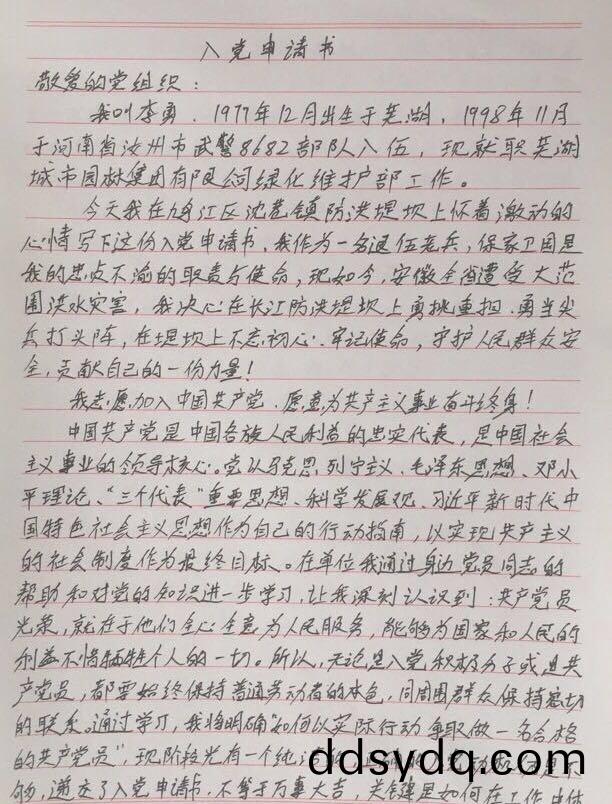 入党申请书
敬爱的党组织:
我叫李勇,1977年12月出生于芜湖,1998年11月
于河南省汝州市武警8682部队入伍,现就职芜湖
城市园林集团有限公司绿化维护部工作。
今天我在鸠江区沈巷镇防洪堤坝上怀着激动的
心情写下这份入党申请书、我作为一名退伍老兵,保家卫国是
我的忠贞不渝的职责与使命,现如今,安徽全省遭受大范
围洪水灾害,我决心在长江防洪堤坝上勇挑重担,勇当尖
兵打头阵,在堤坝上不忘初心、牢记使命,守护人民群众安
全,贡献自己的一份力量!
我志愿加入中国共产党、愿意为共产主义事业奋斗终身!
中国共产党是中国各族人民利益的忠实代表,是中国社会
主义事业的领导核心。党以马克思列宁主义、毛泽东思想、邓小
平理论、“三个代表”重要思想、科学发展观、习近平新时代中
国特色社会主义思想作为自己的行动指南,以实现共产主义
的社会制度作为最终目标。在单位我通过身边党员同志的
帮助和对党的知识进一步学习,让我深刻认识到:共产党员
光荣,就在于他们全心全意为人民服务,能够为国家和人民的
利益不惜牺牲个人的一切。所以,无论是入党积极分子或是共
产党员,都要始终保持普通劳动者的本色,同周围群众保持密切
的联系。通过学习,我将明确“如何以实际行动争取做一名合格
的共产党员”,现阶段光有一个纯
够,递交了入党申请书,不等于万事大吉,关键是如何在工作
ddsydq.com